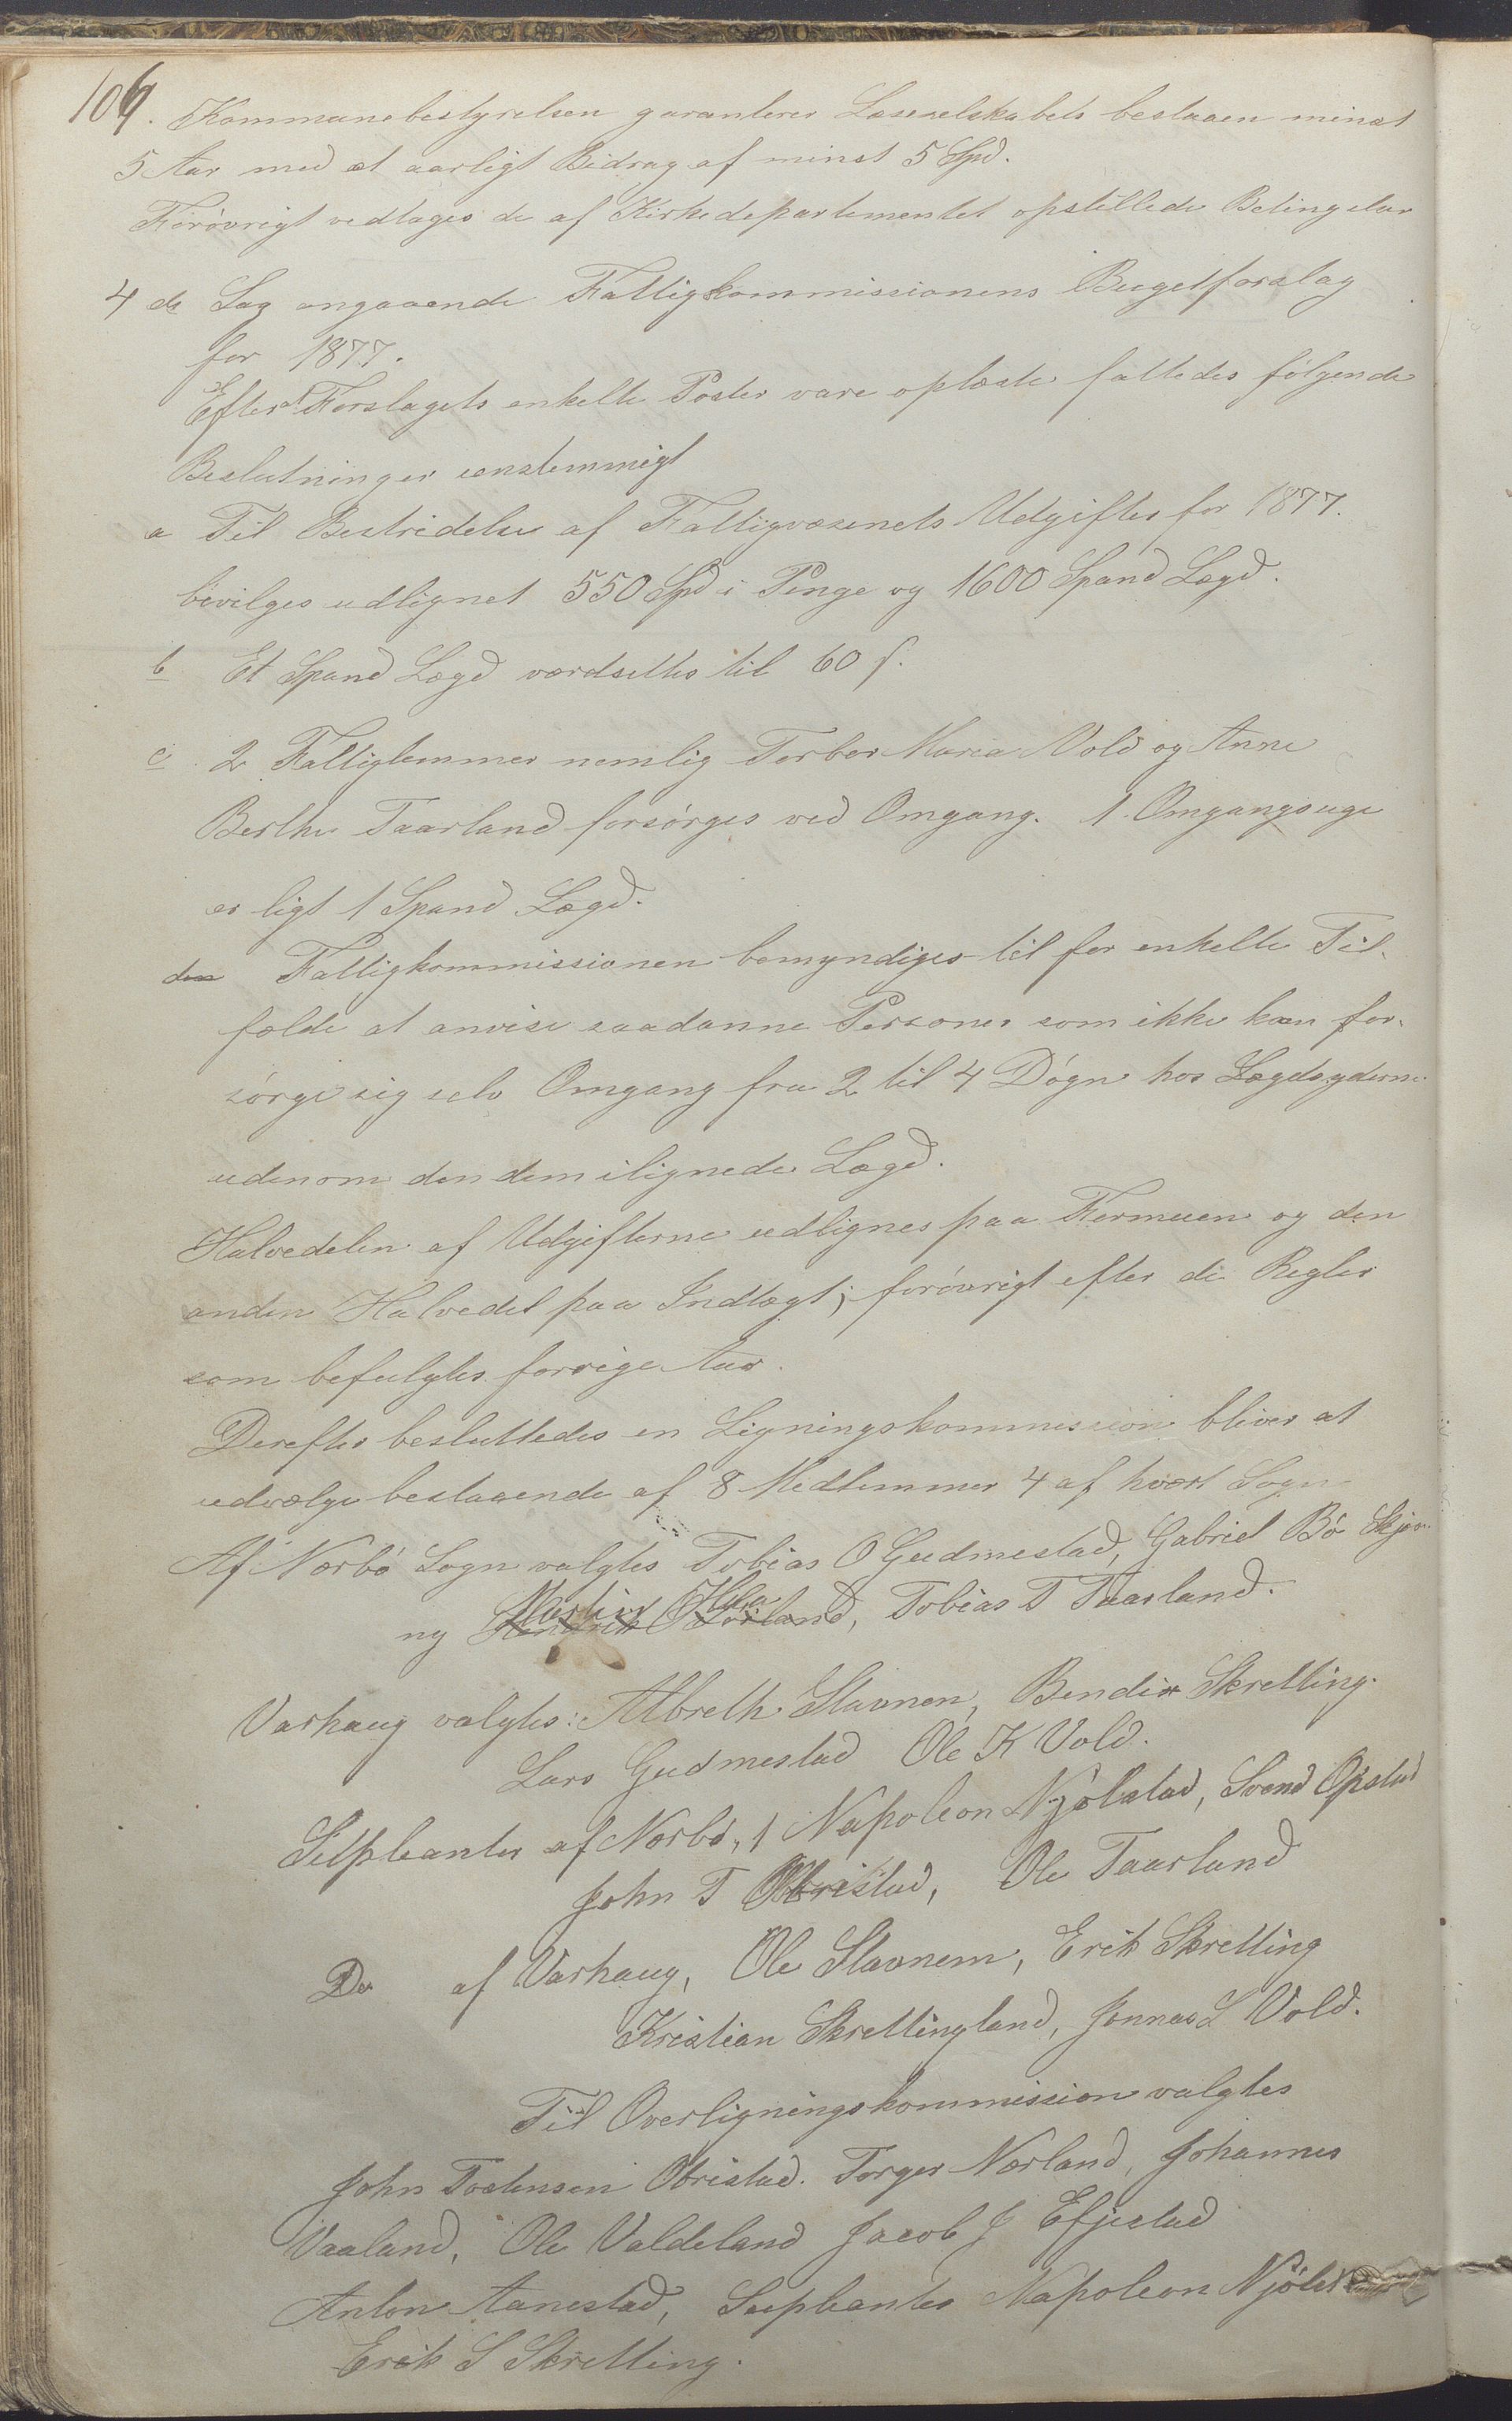 106. Kommunebestyrelsen garanterer Læseselskabets bestaaen minst
5 Aar med et aarligt Bidrag af minst 5 Spd.
Forøvrigt vedtages de af Kirkedepartementet opstillede Betingelser
4 de Sag angaaende Fattigkommissionens Bugetforslag
for 1877.
Efter Forslagets enkelte Poster vare oplæste fattedes følgende
Beslutninger eenstemmigt
a Til Bestridelse af Fattigvæsenets Udgifter for 1877.
bevilges udlignet 550 Spd i Penge og 1600 Spand Lægd.
b Et Spand Lægd værdsettes til 60 s.
c 2 Fattiglemmer nemlig Torbor Maria Vold og Anne
Berthe Taarland forsørges ved Omgang. 1 Omgangsuge
er ligt 1 Spand Lægd.
Fattigkommissionen bemyndiges til for enkelte Til-
fælde at anvise saadanne Personer som ikke kan for-
sørge sig selv Omgang fra 2 til 4 Døgn hos Lægdsyderne
udenom den dem ilignede Lægd.
Halvedelen af Udgifterne udlignes paa Formuen og den
anden Halvedel paa Indtægt; forøvrigt efter de Regler
som befulgtes forrige Aar.
Derefter besluttedes en Ligningskommission bliver at
udvælge bestaaende af 8 Medlemmer 4 af hvert Sogn
Af Nærbø Sogn valgtes Tobias O Gudmestad, Gabriel Bø Skjær-
ng Martin Hola, Tobias T Taarland.
Varhaug valgtes: Albreth Stavnem, Bendix Skretting.
Lars Gudmestad Ole K Vold.
Suppleanter af Nærbø, 1 Napoleon Njølstad, Svend Opstad
John T Obrestad, Ole Taarland
Do af Varhaug, Ole Stavnem, Erik Skretting
Kristian Skrettingland, Jonnas L Vold.
Til Overligningskommission valgtes
John Tostensen Obristad. Torger Nærland, Johannes
Vaaland, Ole Valdeland Jacob J Efjestad
Anton Aanestad, Supleanter Napoleon
Erik S Skretting.